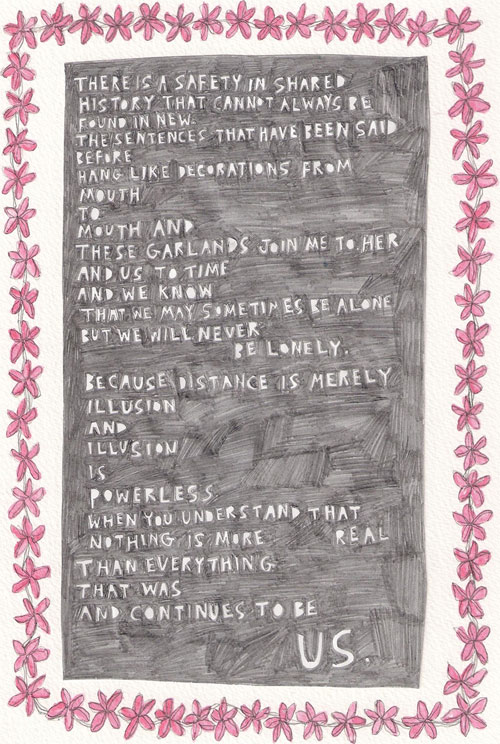 THERE IS A SAFETY IN SHARED
HISTORY THAT CANNOT ALWAYS BE
FOUND IN NEW.
THE SENTENCES THAT HAVE BEEN SAID
BEFORE
HANG LIKE DECORATIONS FROM
MOUTH
TO
MOUTH AND
THESE GARLANDS JOIN ME TO HER
AND US TO TIME
AND WE KNOW
THAT WE MAY SOMETIMES BE ALONE
BUT WE WILL NEVER
BE LONELY.
BECAUSE DISTANCE IS MERELY
ILLUSION
AND
ILLUSION
IS
POWERLESS
WHEN YOU UNDERSTAND THAT
NOTHING IS MORE REAL
THAN EVERYTHING
THAT WAS
AND CONTINUES TO BE
US.